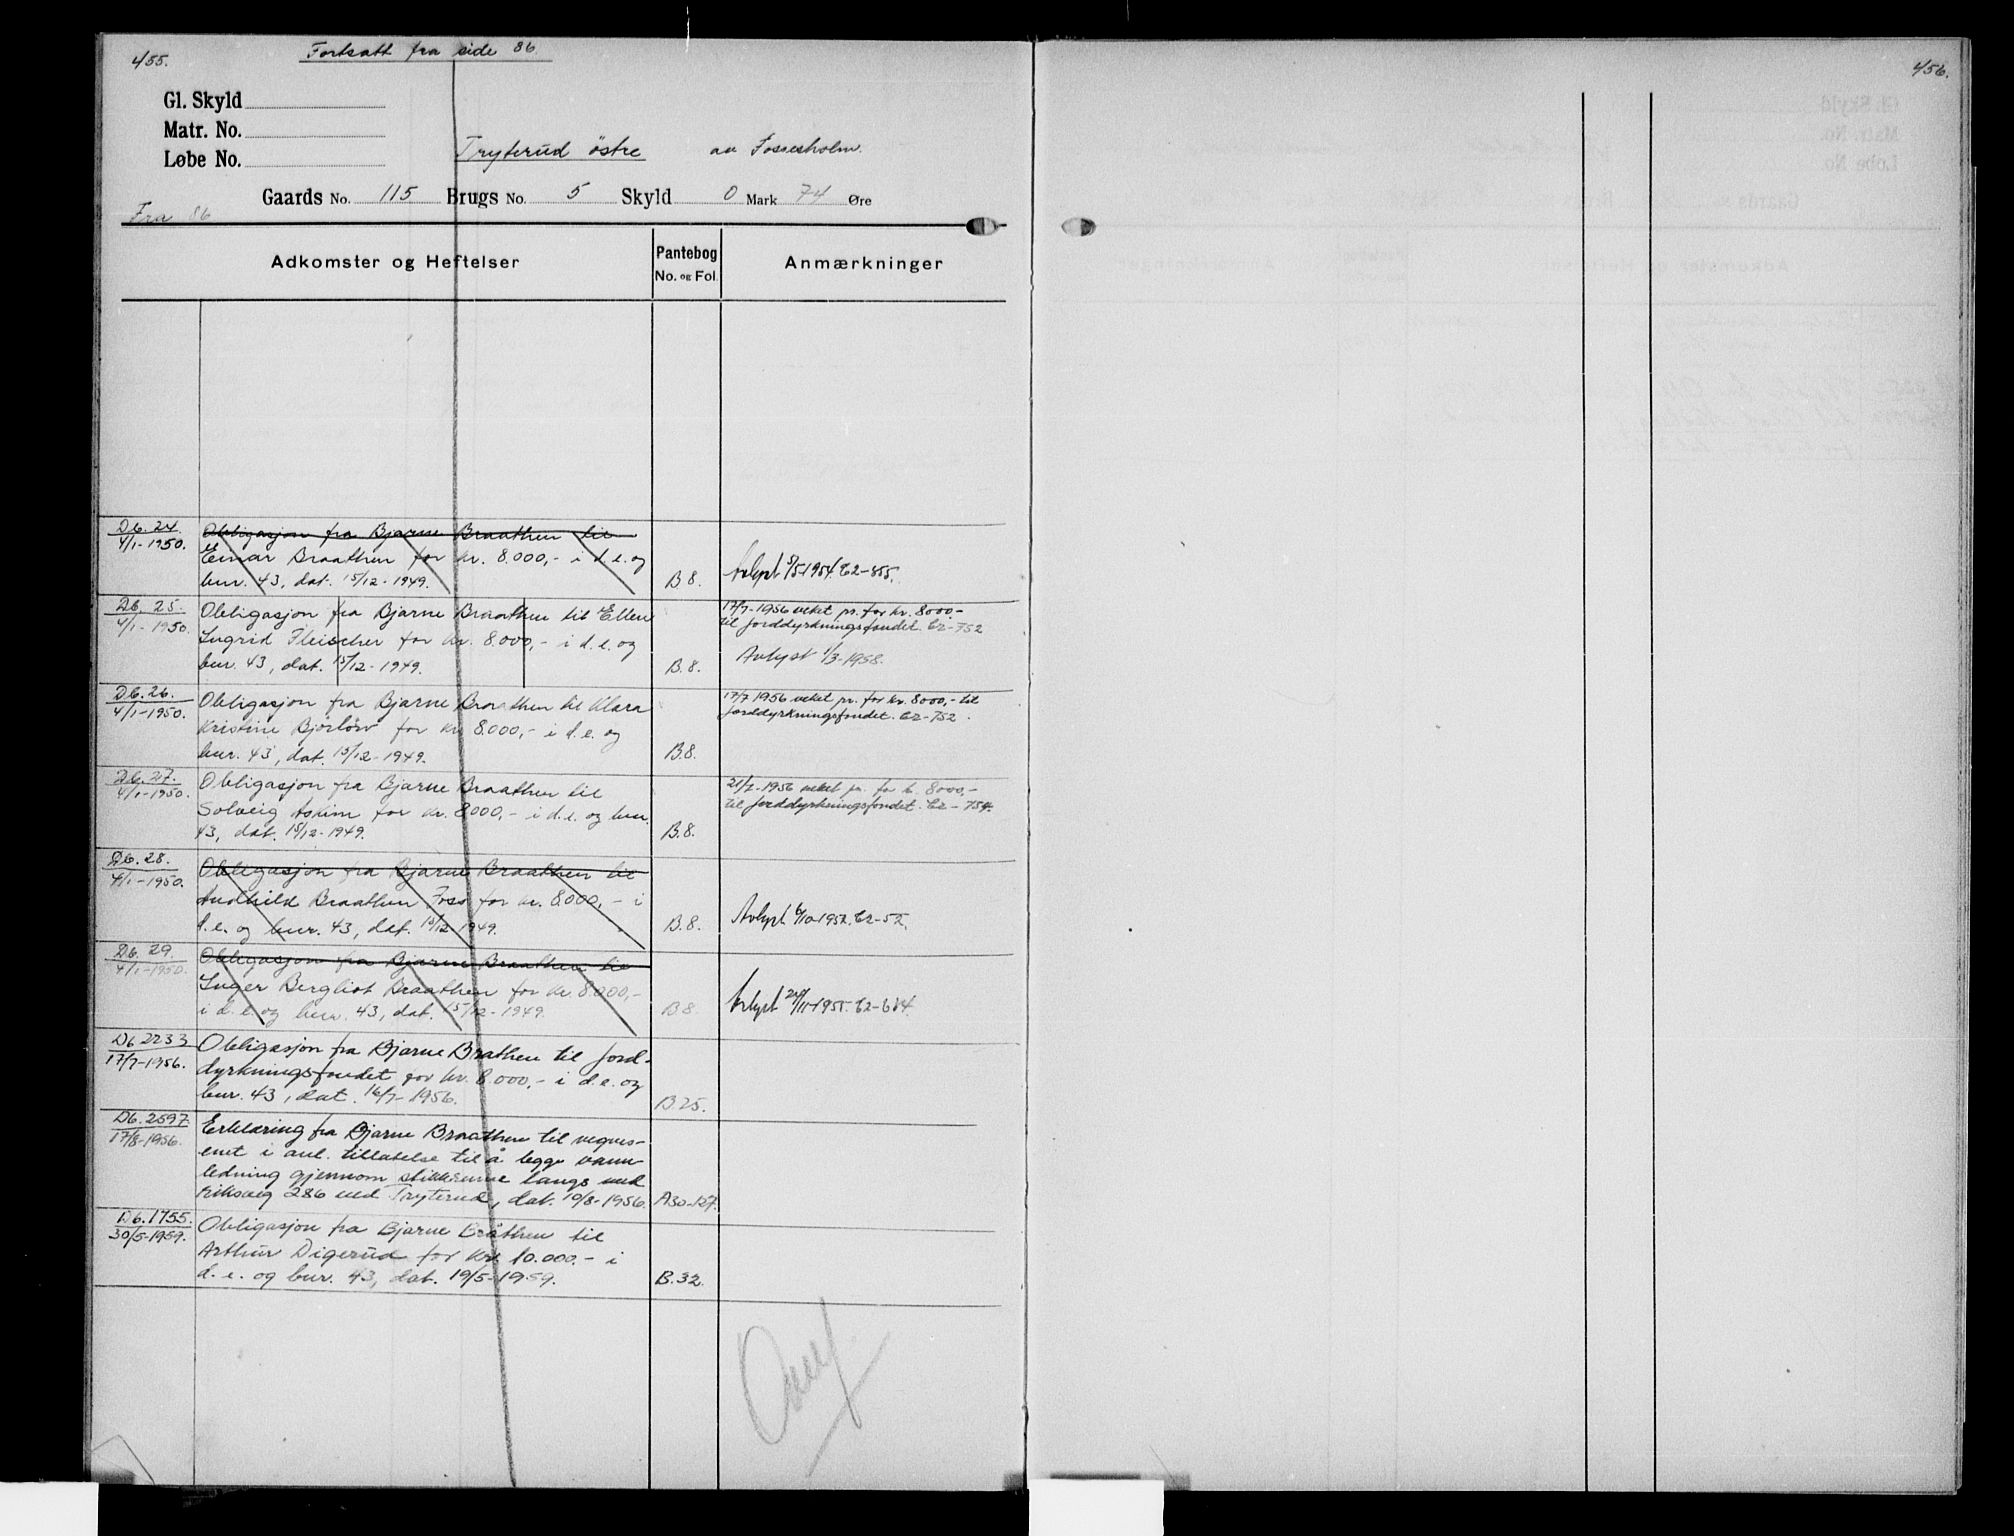 455.
Fortsatt fra side 86
Gl. Skyld
Matr. No.
Løbe No.
Tryterud östre av Fossesholm.
Gaards No. 115 Brugs No. 5 Skyld 0 Mark 74 Øre
Fra 86
Adkomster og Heftelser
Pantebog
No. og Fol.
Anmærkninger
Db. 24
4/1-1950.
Obligasjon fra Bjarne Braathen til
Einar Braathen for kr. 8.000,- i d.e. og
bnr. 43, dat. 15/12-1949.
B 8.
Avlyst 5/5-1954. C2-855.
Db. 25.
4/1-1950.
Obligasjon fra Bjarne Braathen til Ellen
Ingrid Fleischer for kr. 8.000,- i d.e. og
bnr. 43, dat. 15/12-1949.
B.8.
17/7-1956 veket pr. for kr. 8000,-
til jorddyrkningsfondet. C2-752
Avlyst 1/3-1958.
Db. 26.
4/1-1950.
Obligasjon fra Bjarne Braathen til Klara
Kristine for kr. 8.000,- i d.e. og
bnr. 43, dat. 15/12-1949.
B.8.
17/7 1956 veket pr. for kr. 8000,- til
jorddyrkningsfondet. C2-752.
Db. 27.
4/1-1950.
Obligasjon fra Bjarne Braathen til
Solveig Askim for kr. 8000,- i d.e. og bnr.
43, dat. 15/12-1949.
B.8.
21/7-1956 veket pr. for k. 8000,-
til jorddyrkningsfondet. C2-754.
Db. 28.
4/1-1950.
Obligasjon fra Bjarne Braathen til
Braathen Foss for kr. 8.000,- i
d.e. og bnr. 43, dat. 15/12-1949.
B.8.
Avlyst 6/10-1952. C2-52.
Db. 29.
4/1-1950.
Obligasjon fra Bjarne Braathen til
Inger Bergliot Braathen for kr. 8.000,-
i d.e. og bnr. 43, dat. 15/12-1949.
B 8.
Avlyst
Db 2233
17/7-1956.
Obligasjon fra Bjarne Brathen til jord-
dyrkningsfondet for kr. 8.000,- i d.e. og
bnr. 43, dat. 16/7-1956.
B 25.
Db. 2597
17/8-1956.
Erklæring fra Bjarne Braathen til vegves-
enet i anl. tillatelse til å legge vann-
ledning gjennom stikkrenne langs med
riksveg 286 ved Tryterud, dat. 10/8-1956.
A30-127.
Db. 1755.
30/5-1959.
Obligasjon fra Bjarne Bråthen til
Arthur Digerud for kr. 10.000.- i
d.e. og bnr. 43, dat. 19/5-1959.
B.32.
456.